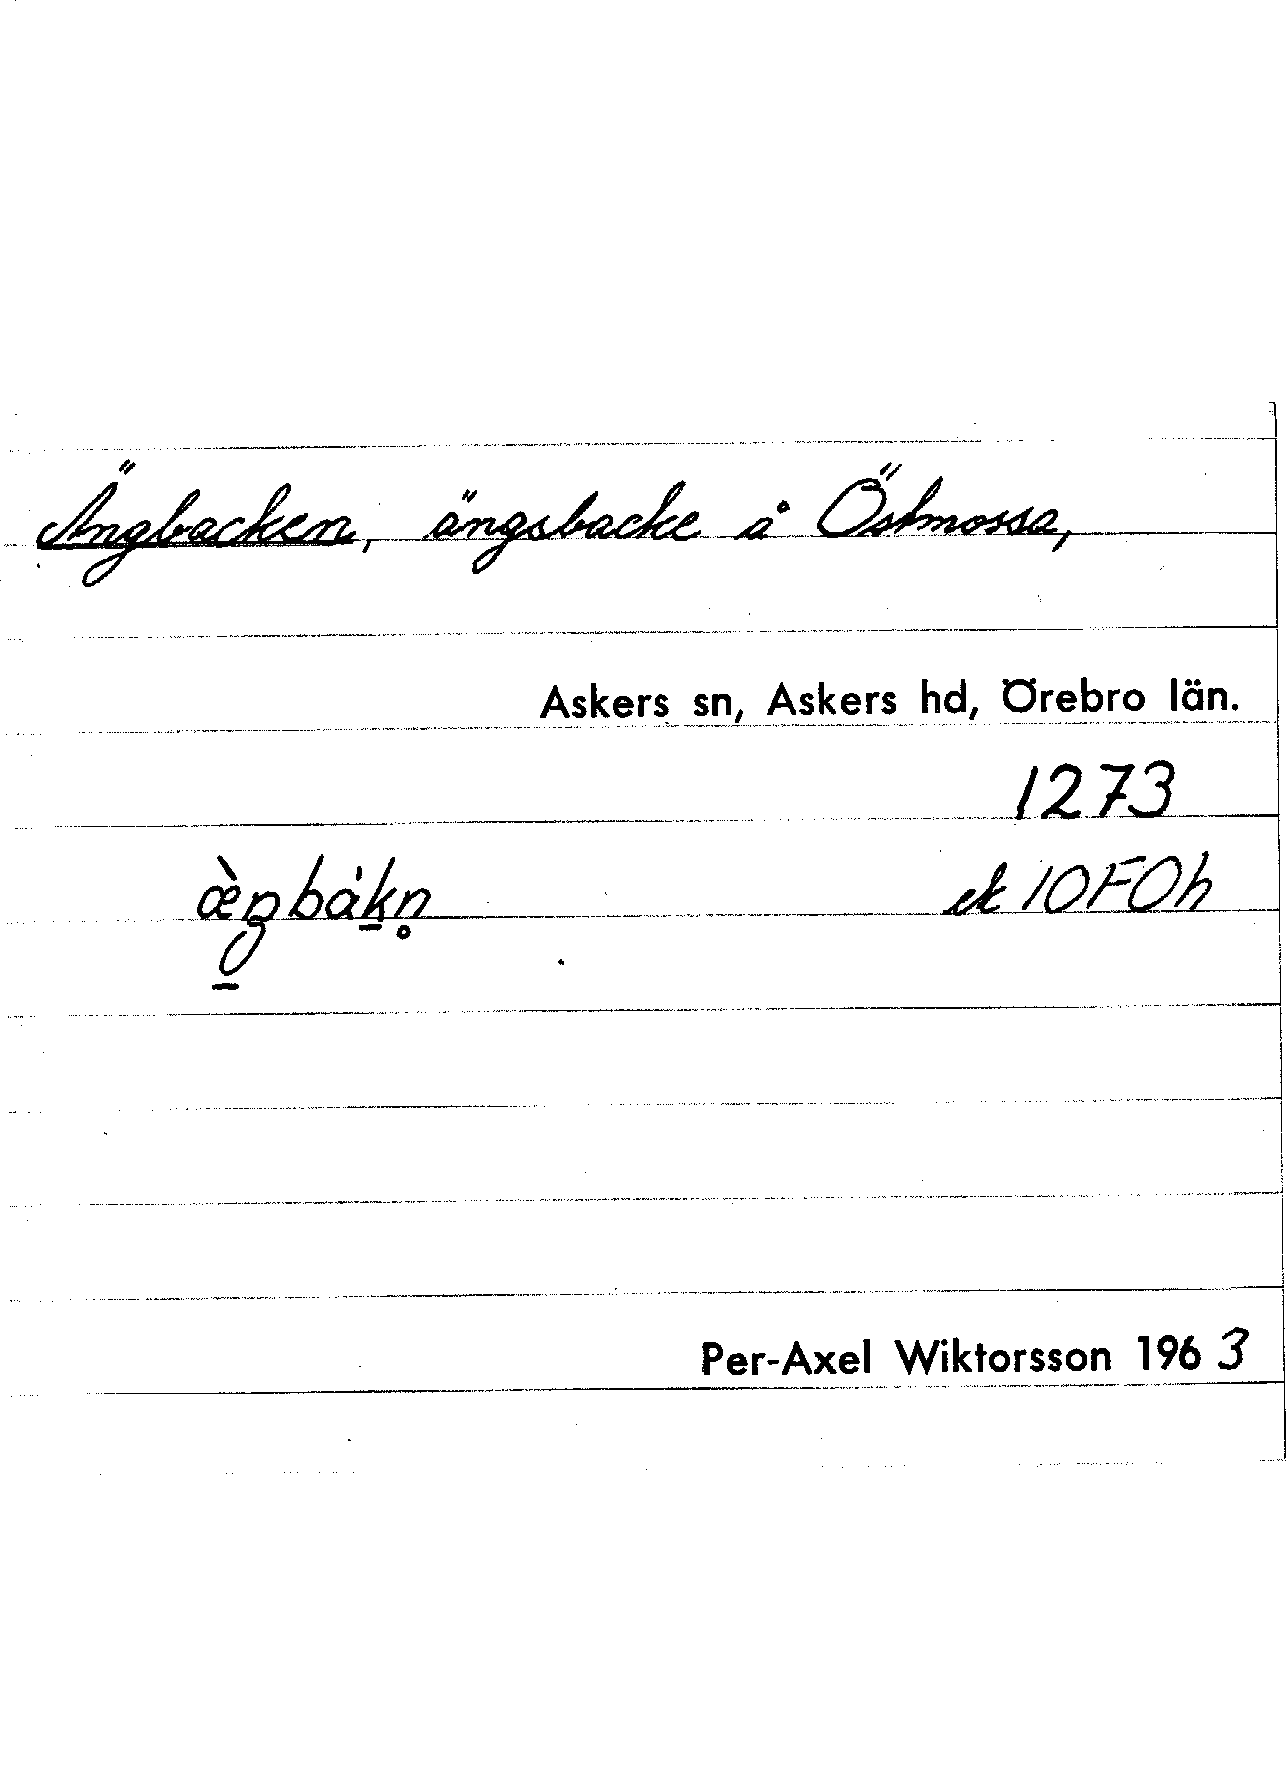 Ängbacken, ängsbacke å Östmossa,
Askers sn, Askers hd, Örebro län.
1273
æ̀ŋ̠bȧk̠n̥ ek 10F0h
Per-Axel Wiktorsson 1963